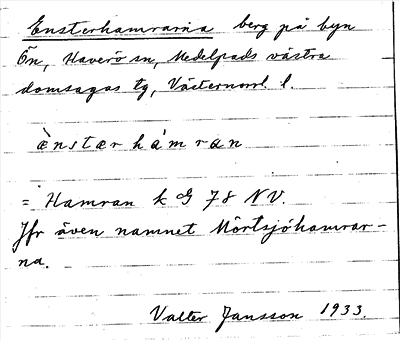 Ensterhamrarna berg på byn
Ön, Haverö sn, Medelpads västra
domsagas tg, Västernorrl. l.
ὲnstær hámran
= Hamran k G 78 NV.
Jfr även namnet Mörtsjöhamrar-
na.
Valter Jansson 1933.